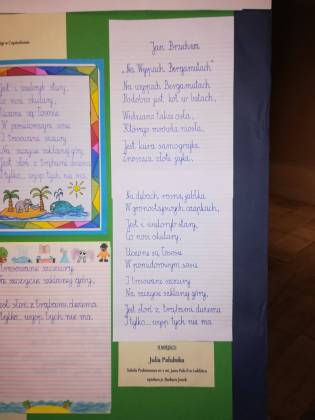 Jan Brzechwa
„Na Wyspach Bergamutach"
Na wyspach Bergamutach
Podobno jest kot w butach,
Widziano także osła,
Którego mrówka niosła,
Jest kura samograjka
Znosząca złote jajka,
Na dębach rosną jabłka
W gronostajowych czapkach,
Jest i wieloryb stary,
Co nosi okulary,
Uczone są łososie
W pomidorowym sosie
I tresowane szczury
Na szczycie szklanej góry,
Jest słoń z trąbami dwiema
I tylko... wysp tych nie ma.
II MIEJSCE
Julia Pałubska
Szkoła Podstawowa nr 2 im. Jana Pawła II w Lublińcu
opiekun p. Barbara
Jest i wieloryb stary,
Co nosi okulary,
Uczone są łososie
W pomidorowym sosie
I tresowane szczury
Na szczycie szklanej góry,
Jest słoń z trąbami dwiema
I tylko wysp tych nie ma.
I tresowane szczury
Na szczycie szklanej góry,
Jest słoń z trąbami dwiema
I tylko... wysp tych nie ma